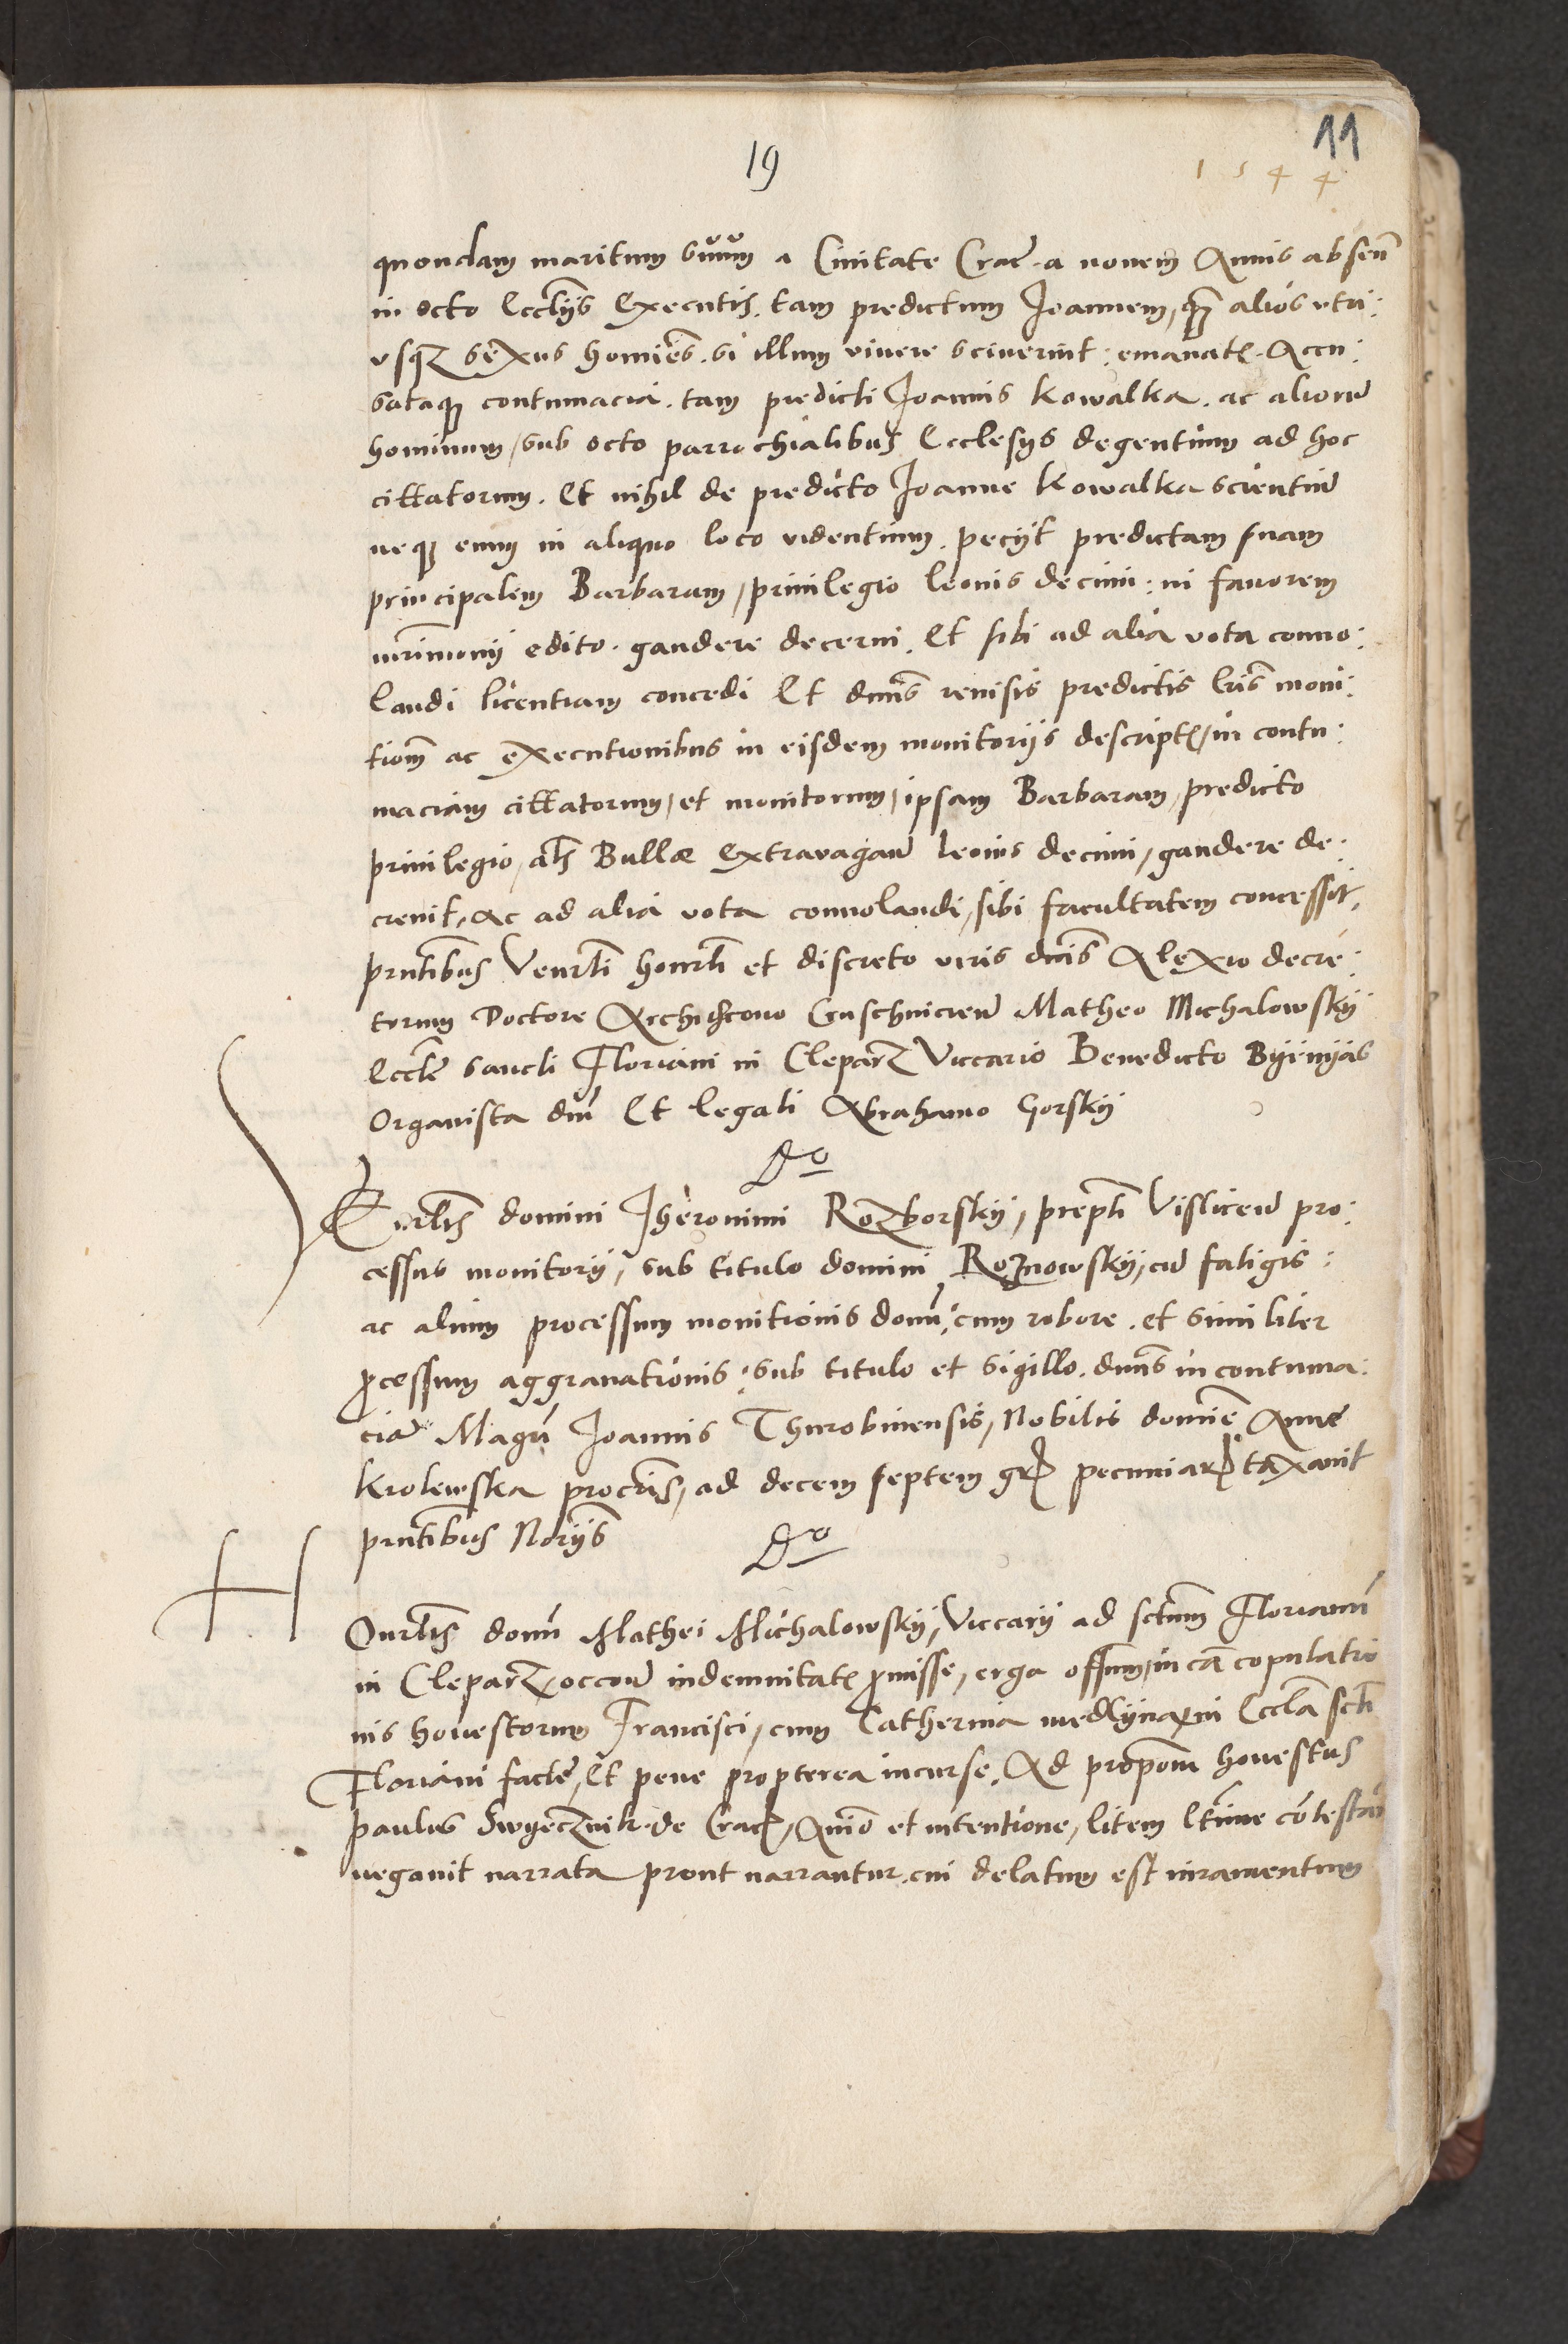 19
11
1544
quondam maritum suum a Ciuitate Crac̃. a nouem Annis absen̄
in octo Eccl̃ijs Executis. tam predictum Joannem, q̃ȝ alios vtri:
vsqȝ sexus homiẽs. si illum viuere sciuerint: emanatꝭ. Accu:
sataqȝ contumacia. tam predicti Joannis Kowalka. ac aliorũ
hominum, sub octo parrochialibus Ecclesijs degentium ad hoc
cittatorum. Et nihil de predicto Joanne Kowalka scientiũ
neqȝ eum in aliquo loco videntium. pecijt predictam suam
principalem Barbaram, priuilegio Leonis decimi: in fauorem
mr̃imonij edito. gaudere decerni. Et sibi ad alia vota conuo:
landi licentiam concedi Et dnñs reuisis predictis lr̃is moni:
tiom̃ ac executionibus in eisdem monitorijs descriptꝭ, in contu:
maciam cittatorum, et monitorum, ipsam Barbaram, predicto
priuilegio, al̃s Bullæ extravagan̄ Leonis decimi, gaudere de:
creuit, Ac ad alia vota conuolandi, sibi facultatem concessit,
pñtibus Venrl̃i honrl̃i et discreto viris dn̄is Alexio decre:
torum Doctore Archidiacono Cuschuicieñ Matheo Michalowsky
Eccl̃e sancti Floriani in Cleparz Viccario Benedicto Byenyas
Organista dni Et legali Abrahamo Gorsky
Do
Honrl̃is domini Jheronimi Rozborsky, prepti Visliceñ pro:
cessus monitorij, sub titulo domini Roznowsky, cũ fatigis:
ac alium processum monitionis domi, cum robore. et similiter
ꝓcessum aggrauationis: sub titulo et sigillo. dnñs in contuma:
ciã Magrĩ Joannis Thurobinensis, Nobilis domĩe Anne
Krolewska procr̃is, ad decem septem gꝶ pecuniaꝶ taxauit
pñtibus Nor̃ijs
Do
H
Onrl̃is domi Mathei Michalowsky, Viccarij ad sctum Florianũ
in Cleparz, occoñ indemnitatꝭ ꝓmisse, erga offium, in cã copulatio
nis honestorum Francisci, cum Catherina medlynarz in Eccl̃a scti
Floriani facte, Et pene propterea incurse. Ad propom̃ honestus
paulus Swyecznik de Cracꝭ, Anĩo et intentione, litem l̃time cõtestañ
negauit narrata prout narrantur. cui delatum est iuramentum